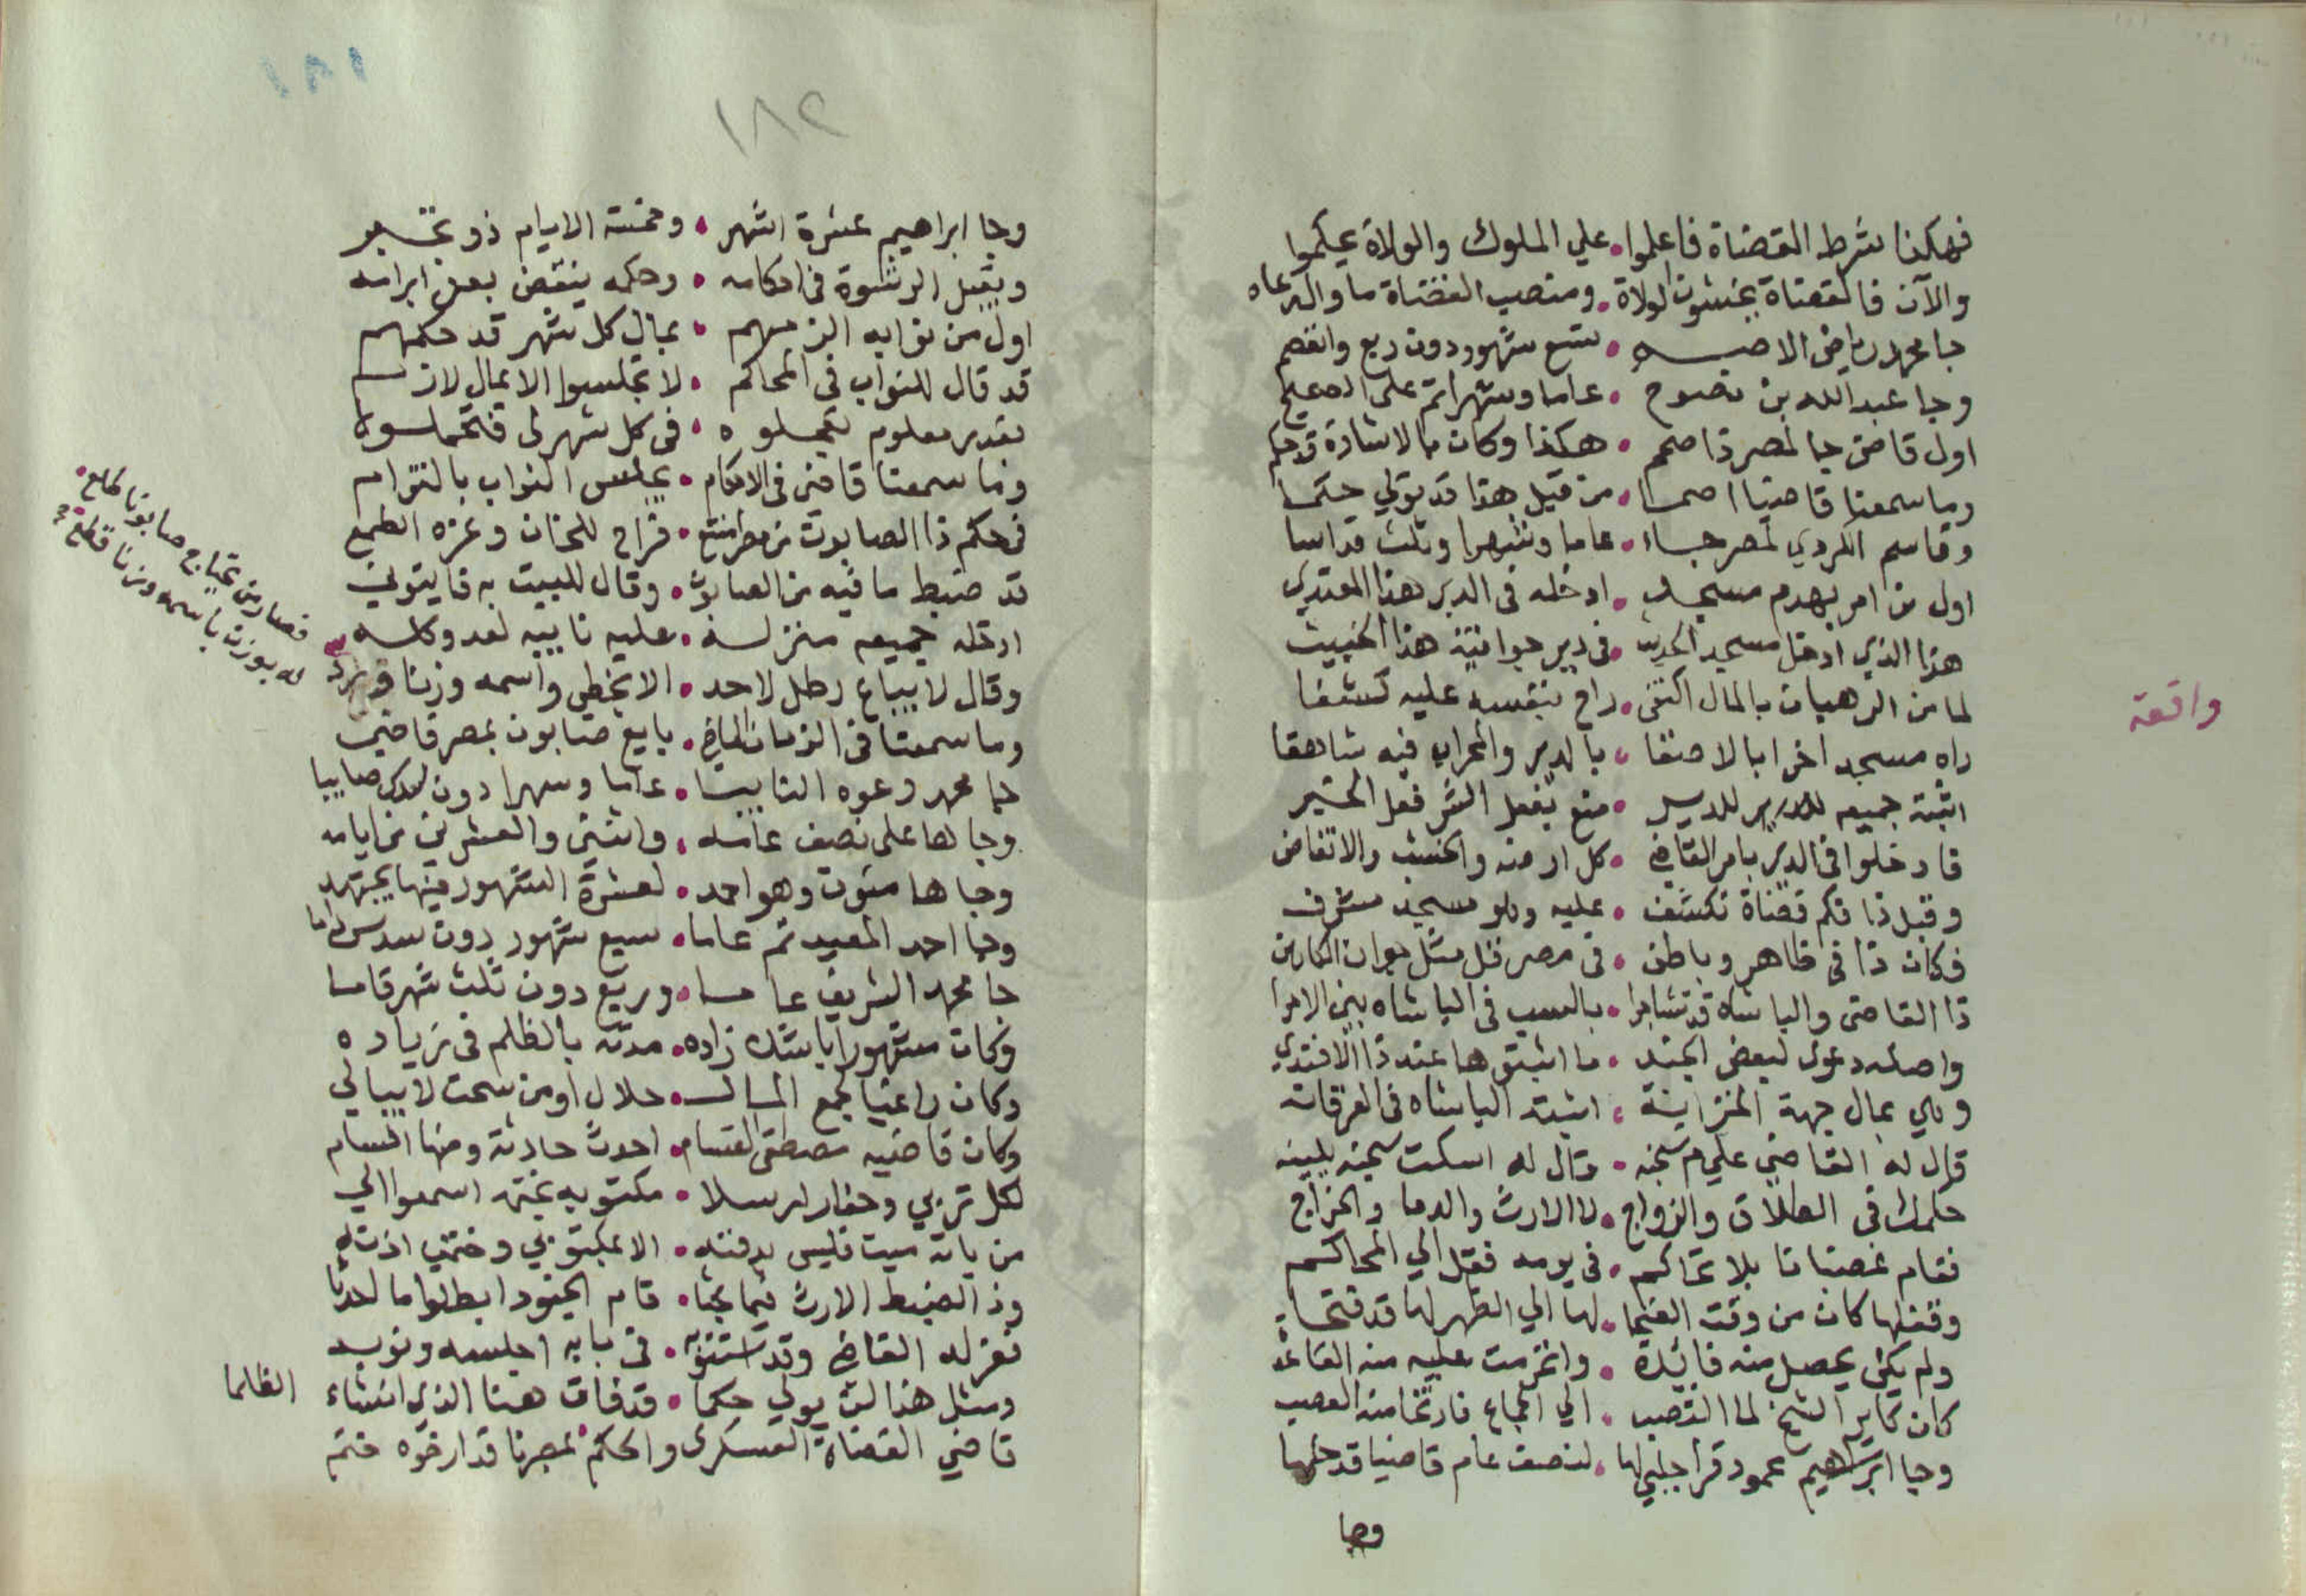 فهكذا شرط القضاة فاعلموا • علي الملوك والولاة يحكموا
والآن فالقضاة يخشون الولاة • ومنصب القضاة ما والته عاه
جا محمد رياض الاصم • تسع شهور دون ربع وانفصم
وجا عبد الله بن نصوح • عاما وشهرا تم على الصحيح
اول قاض جا لمصر ذا صمم • هكذا وكان بالاشارة قد حكم
وما سمعنا قاضيا اصما • من قبل هذا قد تولي حكما
وقاسم الكردي لمصر جاء • عاما وشهرا وثلث
اول من امر بهدم مسجد • ادخله في الدير هذا المعتدي
هذا الذي ادخل مسجد الحديث • في دير جوانية هذا الخبيث
لما من الرهبان بالمال اكتفى • راح بنفسه عليه كشفا
راه مسجد اخرابا لاصقا • بالدير والمحراب فيه شاهقا
اثبته جميعه للدير • منع بفعل الشر فعل الخير
فادخلوا في الدير بامر القاضي • كل ارضه والخشب والانقاض
وقبل ذا فكم قضاة تكشف • عليه وهو مسجد مشرف
فكان ذا في ظاهر وباطن • في مصر قل مثل
ذا القاضي والباشاه قد تشاجرا • بالسب في الباشاه بين الامرا
واصله دعوى لبعض الجند • ما اثبتوها عند ذا الافندي
وهي بمال جهة الخزاينة • اثبته الباشاه في الفرقانه
قال له القاضي علي م سجنه • وقال له اسكت سجنه يلينه
حكمك في الطلاق والزواج • لا الارث والدما والخراج
فقام غضبانا بلا تحاكم • في يومه فقفل الي المحاكم
وقفلها كان من وقت الضحا • لها الي الظهر لها قد فتحا
ولم يكن يحصل منه فائدة • وانخرمت عليه منه القاعدة
كان كاير الشيخ لما انتصب • الي الجماع فارتخا منه العصب
وجا ابراهيم محمود قرا جلبي لها • لنصف عام قاضيا قد حلها
وجا
واقعة
١٨١
١٨٢
وجا ابراهيم عشرة اشهر • ومحنة الايام ذو تجبر
ويقبل الرشوة في احكامه • وحكمه ينقض بعض ابرامه
اول من نوابه الزمهم • بمال كل شهر قد حكمهم
قد قال للنواب في المحاكم • لا تجلسوا الا بمال لازم
بقدر معلوم تجملوه • في كل شهر لي
وما سمعنا قاضي في الاحكام • يجلس النواب بالتزام
في حكم ذا الصابون من مصر امتنع • فراح للخان وغره الطمع
قد ضبط ما فيه من الصابون • وقال للبيت به فايتوني
ادخله جميعه منزله • عليه نايبه لقد وكله
وقال لا يباع رطل لاحد • الا بخطي واسمه وزنا
فصار من يحتاج صابونا طالع •
له بوزن باسمه وزنا قطع
وما سمعنا في الزمان الماضي • بايع صابون بمصر قاضي
جا محمد دعوه النايبا • عاما وشهرا دون
وجا لها على نصف عامه • واثنين والعشرين من ايامه
وجاها مثون وهو احمد • لعشرة الشهور فيها يجتهد
وجا احمد المعيد تم عاما • سبع شهور دون سدس
جا محمد الشريف عاما • وربع دون ثلث شهر قاما
وكان مشهورا باشده زاده • مدته بالظلم في زياده
وكان راغبا لجمع المال • حلال او من سحت لا يبالي
وكان قاضيه مصطفى القسام • احدث حادثة ومنها
لكل تربي وحفار ارسلا • مكتوبه بختمه اسمعوا الي
من ياته ميت فليس يدفنه • الا بمكتوبي وختمي اذنه
وذا لضبط الارث فيما بحثا • قام الجنود ابطلوا ما احدثا
نعزله القاضي وقد • في بابه اجلسه ونويه
ومثل هذا لن يولي حكما • قد فاق هذا الذي انشاء الظلما
قاضي القضاة العسكري والحكم • بمصرنا قد ارخوه ختم